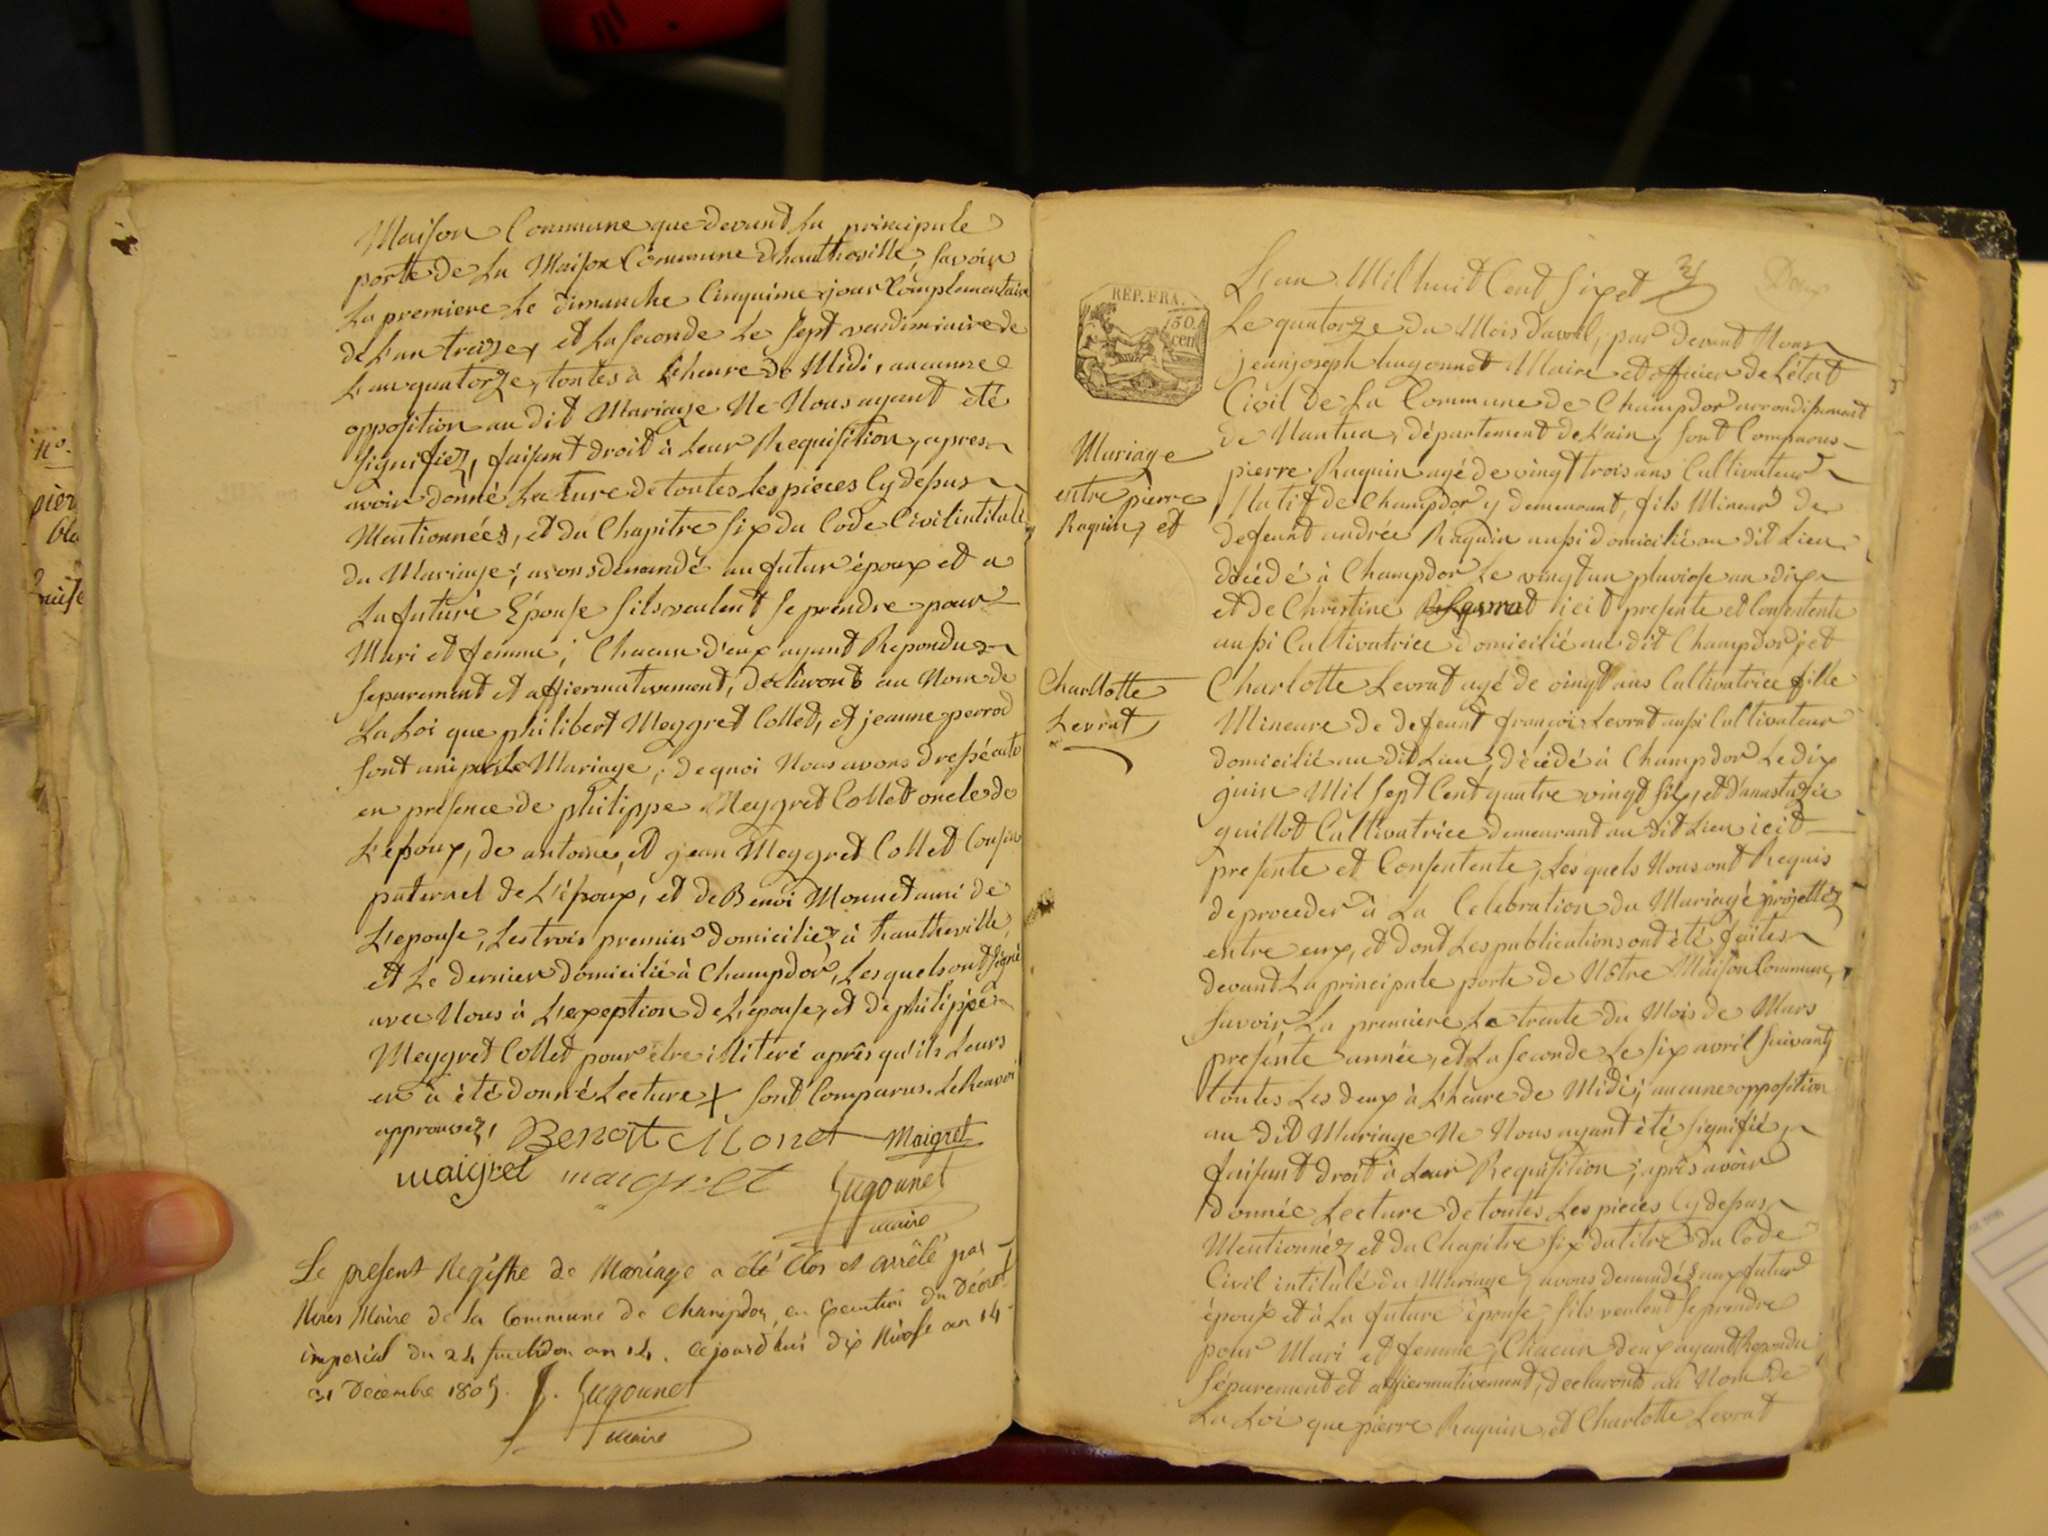 Maison Commune que devant La principale
porte de La Maison Commune d'hauteville, Savoir
La premiere Le dimanche Cinquieme jour Complementaire
de L'an treize, et La seconde Le sept vendimiaire de
L'an quatorze, toutes à L'heure de Midi, aucunne
opposition au dit Mariage Ne Nous ayant été
signifiez, faisant droit à Leur Requisition, apres
avoir donné Lecture de toutes Les pieces Cy dessus
Mentionnées, et du Chapitre six du Code Civil intitulé
du Mariage; avons demandé au futur époux et a
La future Epouse s'ils veulent se prendre pour
Mari et femme; Chacun d'eux ayant Repondus
separement et affiermativement, déclarons au Nom de
La Loi que philibert Meygret Collet, et jeanne perrod
sont uni par Le Mariage; de quoi Nous avons dressé acte
en présence de philippe Meygret Collet oncle de
L'époux, de antoine, et jean Meygret Collet Cousin
paternel de L'époux, et de Benoi Monnet ami de
L'epouse, Les trois premier domiciliez à hautheville,
et Le dernier domicilié à Champdor, Les quels ont signé
avec Nous à L'exeption de L'epouse, et de philippe
Meygret Collet pour être illiteré après qu'ils Leurs
en à été donné Lecture + sont Comparus. Le Renvoi
approuvez,
Benoit Monet Maigret
maigret maigret
Hugonnet
maire
Le present Registre de Mariage a été Clos et arrêté par
Nous Maire de la Commune de Champdor, en execution du Décret
imperial du 24 fructidor an 14. Cejourd'hui dix Nivose an 14
31 Décembre 1805. J. Hugonnet
maire
REP. FRA.
50.
cen
L'an Mil huit Cent six et
Le quatorze du Mois d'avril, par devant Nous
jean joseph hugonnet Maire et officier de L'état
Civil de La Commune de Champdor arrondissement
de Nantua, département de L'ain, sont Comparus
pierre Raquin agé de vingt trois ans Cultivateur
Natif de Champdor y demeurant, fils Mineur de
defeunt andrée Raquin aussi domicilié au dit Lieu
décédé à Champdor Le vingt un pluviose an dix
et de Christine Levrat icit presente et Consentente
aussi Cultivatrice domicilié au dit Champdor; et
Charlotte Levrat agé de vingt ans Cultivatrice fille
Mineure de defeunt françois Levrat aussi Cultivateur
domicilié au dit Lieu, décédé à Champdor Le dix
juin Mil sept Cent quatre vingt six, et d'anastazie
guillot Cultivatrice demeurant au dit Lieu icit
presente et Consentente, Les quels Nous ont Requis
de proceder à La Celebration du Mariage projettez
entre eux, et dont Les publications ont été faites
devant La principale porte de Nôtre Maison Commune,
savoir, La premiere Le trente du Mois de Mars
presente année, et La seconde Le six avril suivant
toutes Les deux à L'heure de Midi; aucune opposition
au dit Mariage Ne Nous ayant été signifié,
faisant droit à Leur Requisition; après avoir
donnée Lecture de toutes Les pieces Cy dessus
Mentionnéz et du Chapitre six du titre du Code
Civil intitulé du Mariage, avons demandé aux futur
époux et à La future épouse, s'ils veulent se prendre
pour Mari et femme; Chacun d'eux ayant Repondu
séparement et affiermativement, declarons au Nom de
La Loi que pierre Raquin, et Charlotte Levrat
Mariage
entre pierre
Raquin, et
Charllotte
Levrat